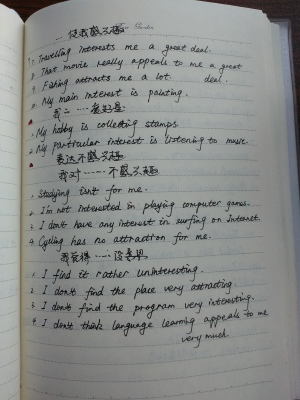 一 使我感兴趣
1. Travelling interests me a great deal.
2. That movie really appeals to me a great
deal.
9. Fishing attracts me a lot.
10. My main interest is painting.
我之……爱好是
My hobby is collecting stamps.
My particular interest is listening to music.
表达不感兴趣
我对……不感兴趣
1. Studying isn't for me.
2. I'm not interested in playing computer games.
3. I don't have any interest in surfing on Internet.
4. Cycling has no attraction for me.
我觉得……没意思
1. I find it rather uninteresting.
2. I don't find the place very attracting.
3. I don't find the program very interesting.
4. I don't think language learning appeals to me
very much.